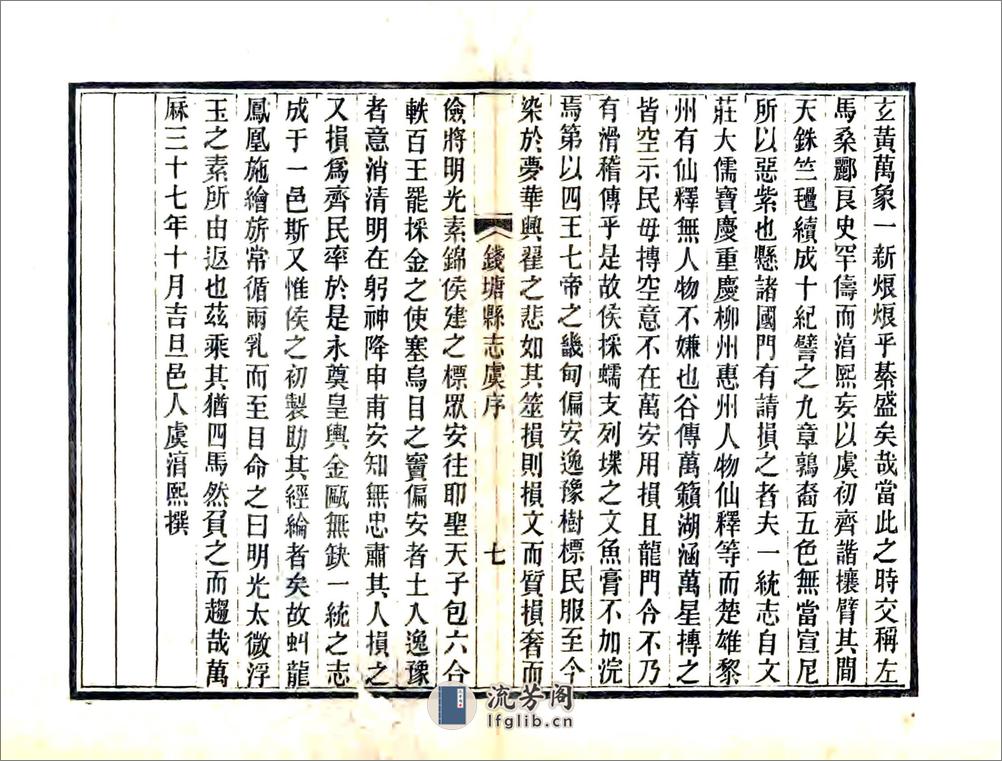 玄黃萬象一新煨煨乎綦盛矣哉當此之時交稱左
馬桑酈良史罕儔而湻熙妄以虞初齊諧攘臂其間
天銖竺㲲續成十紀譬之九章鶉裔五色無當宣尼
所以惡紫也懸諸國門有請損之者夫一統志自文
莊大儒寶慶重慶柳州惠州人物仙釋等而楚雄黎
州有仙釋無人物不嫌也谷傳萬籟湖涵萬星摶之
皆空示民毋摶空意不在萬安用損且龍門令不乃
有滑稽傳乎是故侯採蠕支列堞之文魚膏不加浣
焉第以四王七帝之畿甸偏安逸豫樹標民服至今
染於夢華興翟之悲如其筮損則損文而質損奢而
錢塘縣志虞序
七
儉將明光素錦侯建之標眾安往耶聖天子包六合
軼百王罷採金之使塞烏目之竇偏安者土入逸豫
者意消清明在躬神降申甫安知無忠肅其人損之
又損爲齊民率於是永奠皇輿金甌無缺一統之志
成于一邑斯又惟侯之初製助其經綸者矣故虯龍
鳳凰施繪旂常循兩乳而至目命之曰明光太微浮
玉之素所由返也茲乘其猶四馬然負之而趨哉萬
厤三十七年十月吉旦邑人虞湻熙撰
流芳阁
lfglib.cn